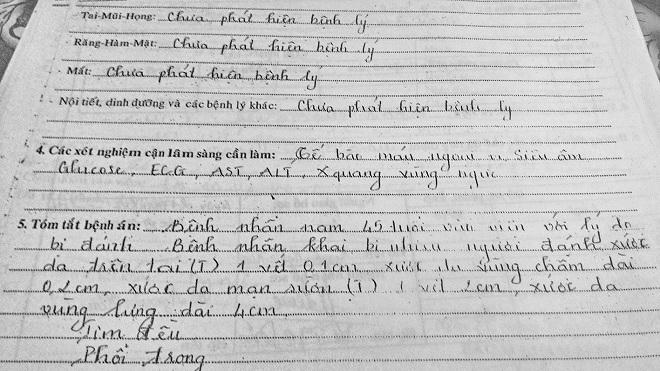 - Tai-Mũi-Họng: Chưa phát hiện bệnh lý
- Răng-Hàm-Mặt: Chưa phát hiện bệnh lý
- Mắt: Chưa phát hiện bệnh lý
- Nội tiết, dinh dưỡng và các bệnh lý khác: Chưa phát hiện bệnh lý
4. Các xét nghiệm cận lâm sàng cần làm: Tế bào máu ngoại vi, Siêu âm
Glucose, ECG, AST, ALT, X quang vùng ngực
5. Tóm tắt bệnh án: Bệnh nhân nam 45 tuổi vào viện với lý do
bị đánh. Bệnh nhân khai bị nhiều người đánh xước
da trên tai (T) 1 vết 0,1cm, xước da vùng chẩm dài
0,2cm, xước da mạn sườn (T) 1 vết 2cm, xước da
vùng lưng dài 4cm.
Tim đều
Phổi trong